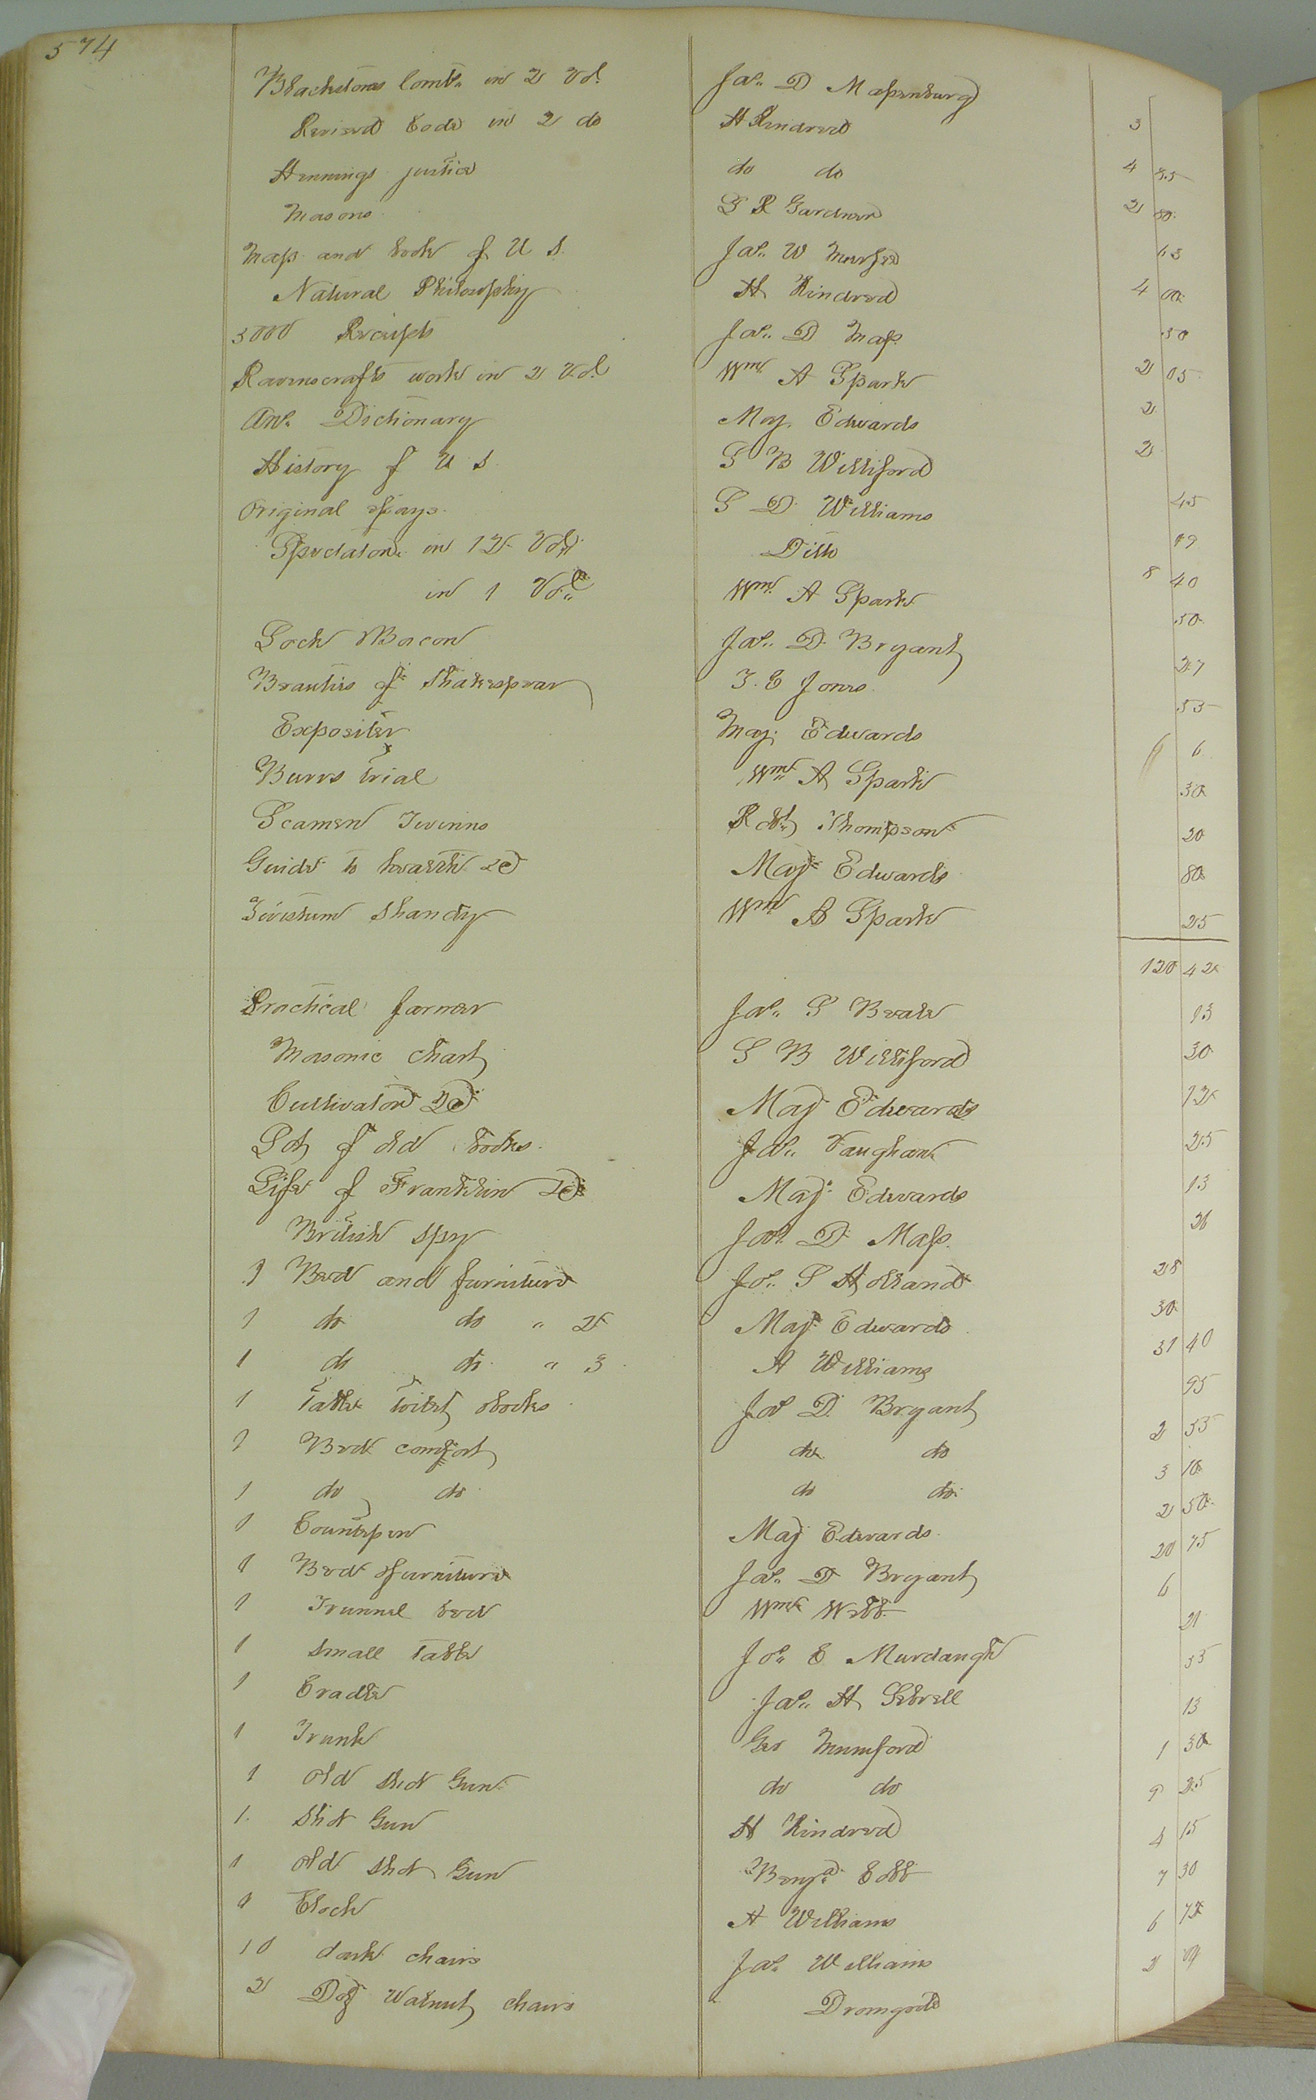 574
Blackstones Comt.. in 2 Vol. Jas.. D Massenburg
Revised Code in 2 do H Kindred 3
Hennings justice do do 4 25
Masons S R Gardner 2 50
Map and book of U S. Jas.. W Murfee 63
Natural Philosophy H Kindred 4 00
5000 Receipts Jas.. D Mass. 50
Ravenscrofts work in 2 Vol. Wm. A Spark 2 05
Ans. Dictionary Maj. Edwards 2
History of U S. S B Williford 2
Original Essays. S D. Williams 45
Spectator in 12 Vol. Ditto 09
in 1 Vol Wm. A Spark 8 40
Lock Bacon Jas.. D. Bryant 50
Beauties of Shakespear T. E Jones 27
Expositer Maj. Edwards 55
Burrs trial Wm.. A Spark 6
Seamen Robt. Thompson 30
Guide to health 2d Maj. Edwards 20
Tivistum Shandy Wm A Spark 80
25
120 42
Practical farmer Jas.. S Beale 13
Masonic Chart S B Williford 30
Cultivator 2d Maj Edwards 12
Lot of old books. Jas.. Vaughan 25
Life of Franklin 2d Maj. Edwards 13
British spy Jas. D. Mass. 26
1 Bed and furniture Jos.. S Holland 28
1 do do " 2 Maj. Edwards 30
1 do do. " 3 A Williams 31 40
1 Table toilet Jas D. Bryant 95
1 Bed comfort do do 2 55
1 do do do do. 3 10
1 Counterpen Maj Edwards. 2 50
1 Bed & furniture Jas. D Bryant 20 75
1 Trunnel bed Wm. Webb 6
1 small table Jos. E Murdaugh 21
1 Cradle Jas.. H Sebrell 35
1 Trunk Geo Mumford 13
1 old shot Gun do do 1 30
1. Shot Gun H Kindred 9 25
1 old shot Gun Benj. Cobb 4 15
1 Clock A Williams 7 30
10 dark chairs Jas. Williams 6 72
2 Doz Walnut chairs " Dromgoole 2